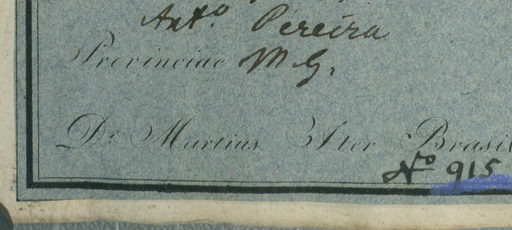 Antº. Pereira
Provinciae M. G.
Dr. Martius Iter Brasil
Nº 915